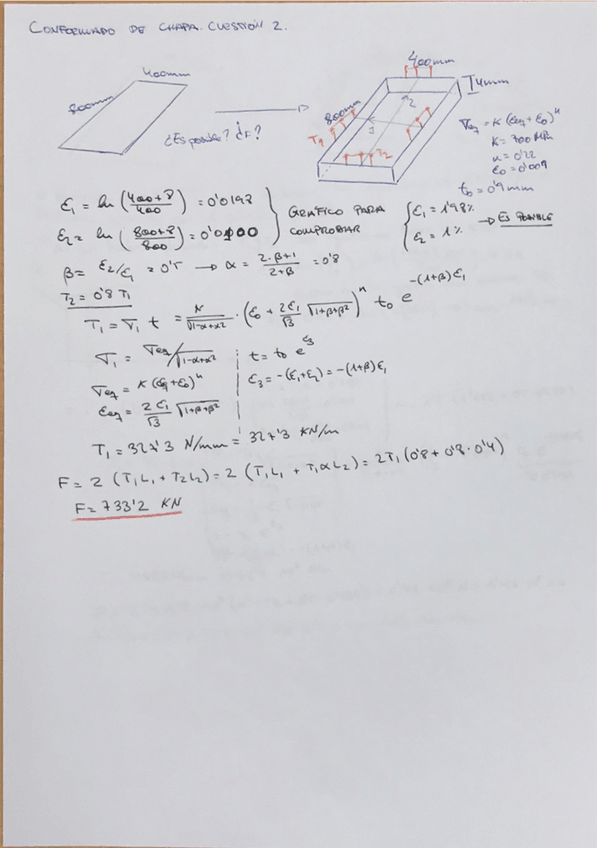 CONFORMADO DE CHAPA. CUESTIÓN 2.
400mm
800mm
¿Es posible? ¿F?
400mm
800mm
I 4mm
T1
T2
1
2
σeq = K (εeq + ε0)^n
K = 700 MPa
n = 0'22
ε0 = 0'009
t0 = 0'9 mm
ε1 = ln (400+8 / 400) = 0'0198
ε2 = ln (800+8 / 800) = 0'0100
GRÁFICO PARA
COMPROBAR
ε1 = 1'98%
ε2 = 1%
→ ES POSIBLE
β = ε2/ε1 = 0'5 → α = 2·β+1 / 2+β = 0'8
T2 = 0'8 T1
T1 = σ1 t = K / √1-α+α² · (ε0 + 2ε1/√3 √1+β+β²)^n t0 e^-(1+β)ε1
σ1 = σeq / √1-α+α²
t = t0 e^ε3
σeq = K (εeq+ε0)^n
ε3 = -(ε1+ε2) = -(1+β) ε1
εeq = 2ε1/√3 √1+β+β²
T1 = 327'3 N/mm = 327'3 KN/m
F = 2 (T1L1 + T2L2) = 2 (T1L1 + T1αL2) = 2T1 (0'8 + 0'8·0'4)
F = 733'2 KN